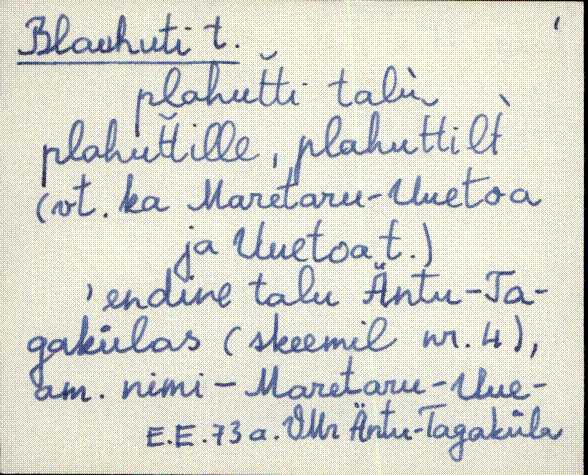 Blauhuti t.
plahut̆ti talù
plahut̆tille, plahuttilt̀
(vt. ka Maretaru-Uuetoa
ja Uuetoa t.)
'endine talu Äntu-Ta-
gakülas (skeemil nr. 4),
am. nimi - Maretaru-Uue-
E.E. 73 a. VMr Äntu-Tagaküla